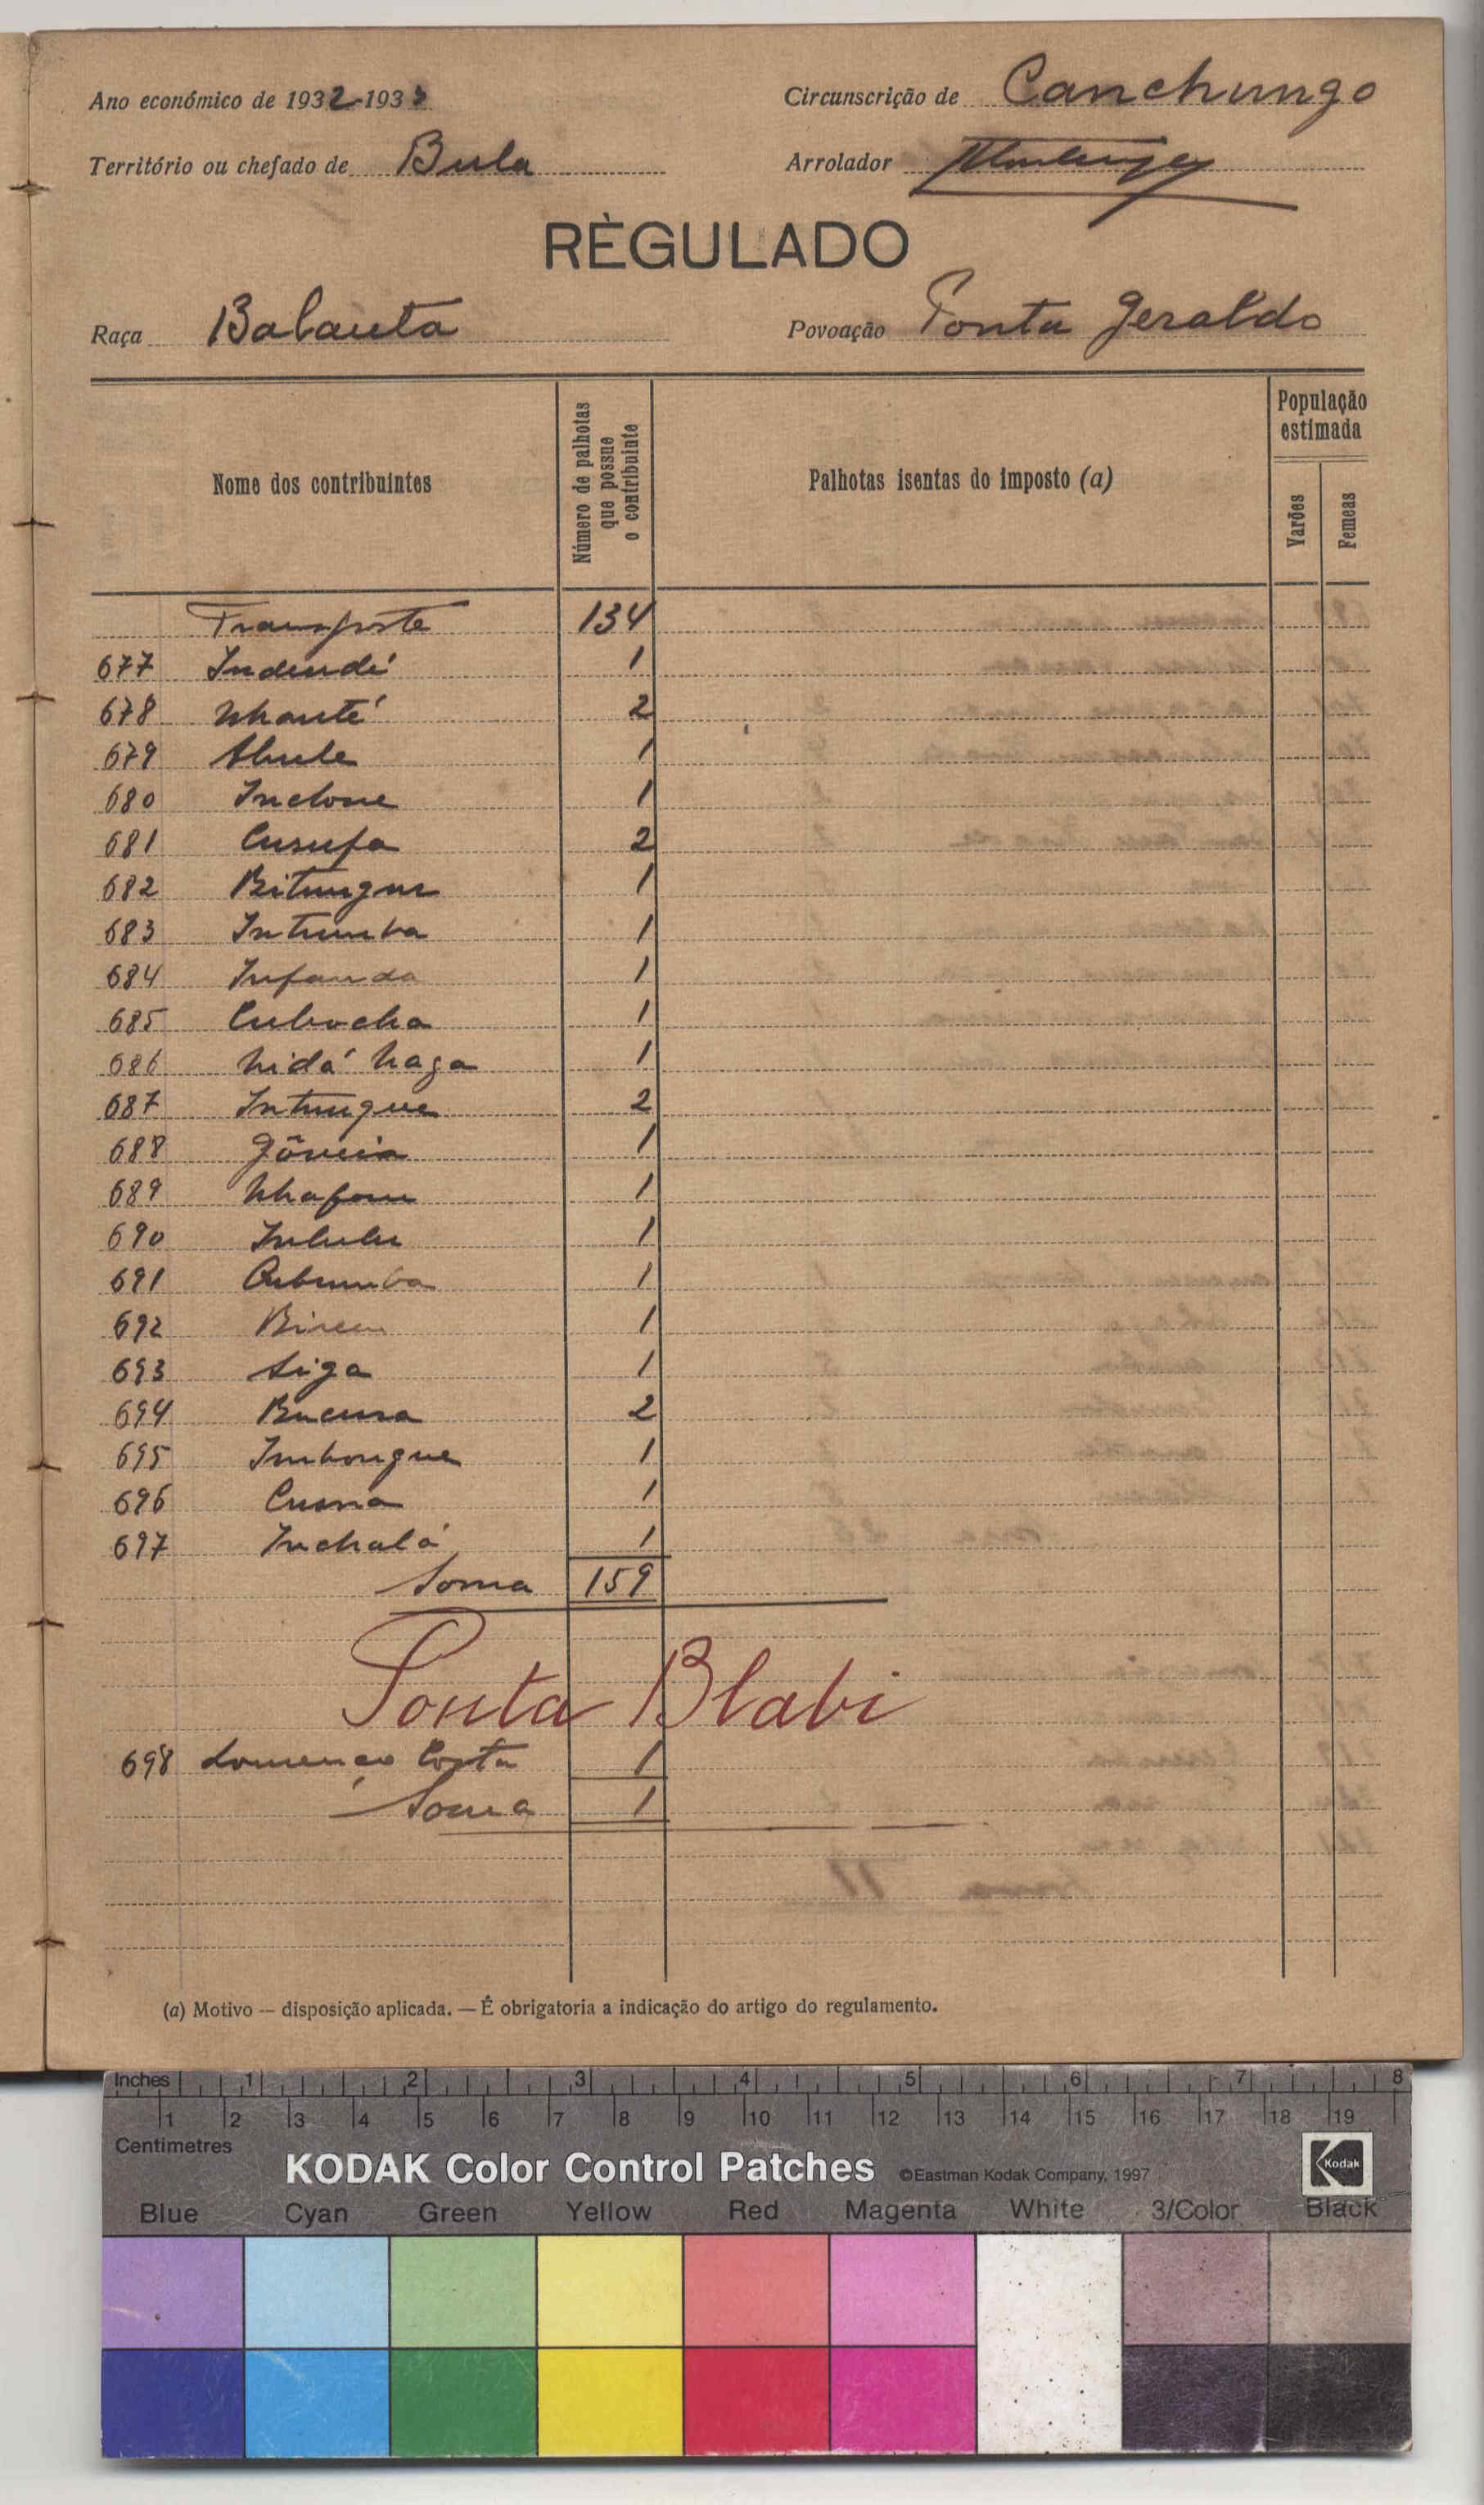 Ano económico de 1932-1933
Circunscrição de Canchungo
Território ou chefado de Bula
Arrolador
RÈGULADO
Raça Balanta
Povoação Ponta Geraldo
Nome dos contribuintes
Número de palhotas que possue o contribuinte
Palhotas isentas do imposto (a)
População estimada
Varões
Femeas
Transporte 134
677 Indendé 1
678 Nhanté 2
679 Abule 1
680 Inclone 1
681 Cusufa 2
682 Bitungue 1
683 Intumba 1
684 Infanda 1
685 Cubocha 1
686 Nidá Naga 1
687 Intungue 2
688 1
689 Nhafone 1
690 Inlulu 1
691 1
692 1
693 Siga 1
694 2
695 Imbongue 1
696 Cusna 1
697 Inchalá 1
Soma 159
Ponta Blabi
698 Lourenço Costa 1
Soma 1
(a) Motivo — disposição aplicada. — É obrigatoria a indicação do artigo do regulamento.
Inches 1 2 3 4 5 6 7 8
1 2 3 4 5 6 7 8 9 10 11 12 13 14 15 16 17 18 19
Centimetres
KODAK Color Control Patches ©Eastman Kodak Company, 1997 Kodak
Blue Cyan Green Yellow Red Magenta White 3/Color Black